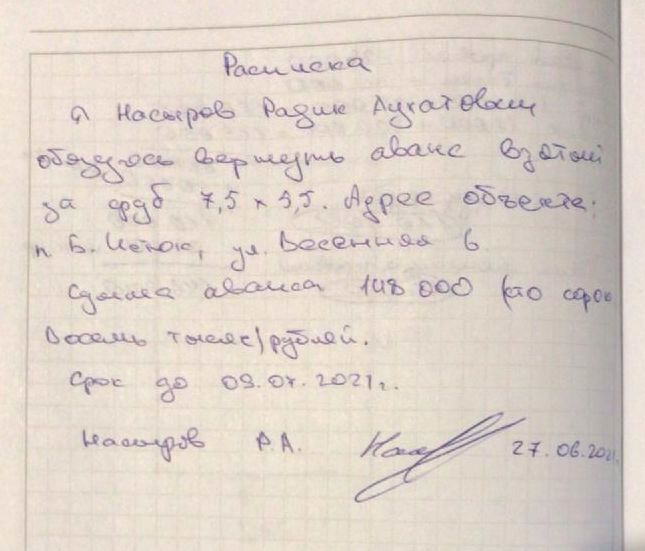 Расписка
Я Насыров Радик Ахатович
обязуюсь вернуть аванс взятый
за сруб 7,5 х 9,5. Адрес объекта:
п. Б. Исток, ул. Весенняя 6
Сумма аванса 148 000 (сто сорок
восемь тысяч) рублей.
Срок до 09.07.2021г.
Насыров Р.А. 27.06.2021г.